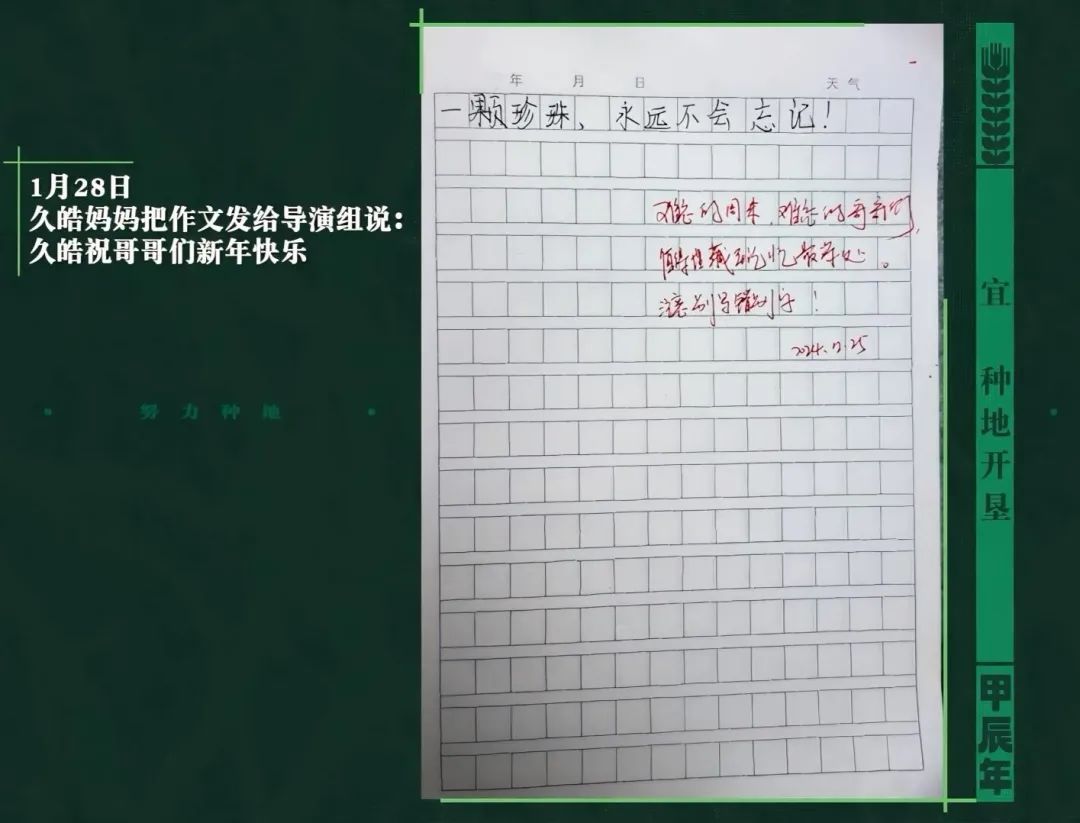 1月28日
久皓妈妈把作文发给导演组说：
久皓祝哥哥们新年快乐
努力种地
年 月 日 天气
一颗珍珠、永远不会忘记！
难忘的周末，难忘的哥哥们，
值得埋藏到记忆最深处。
注意别写错别字！
2024.12.25
宜
种地开垦
甲辰年